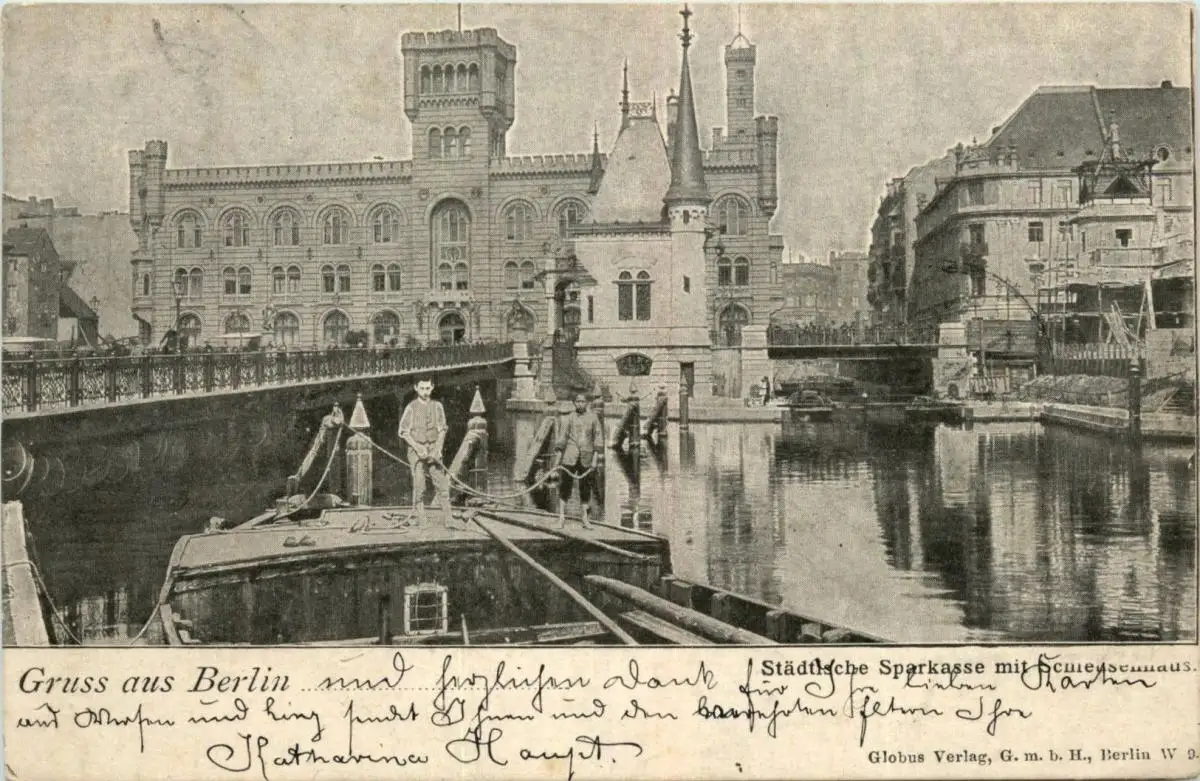 Gruss aus Berlin und herzlichen Dank für Ihre lieben Karten
Städtische Sparkasse mit Schleusenhaus.
aus und Linz sendet Ihnen und den verehrten Eltern Ihre
Katharina Haupt.
Globus Verlag, G. m. b. H., Berlin W 9.